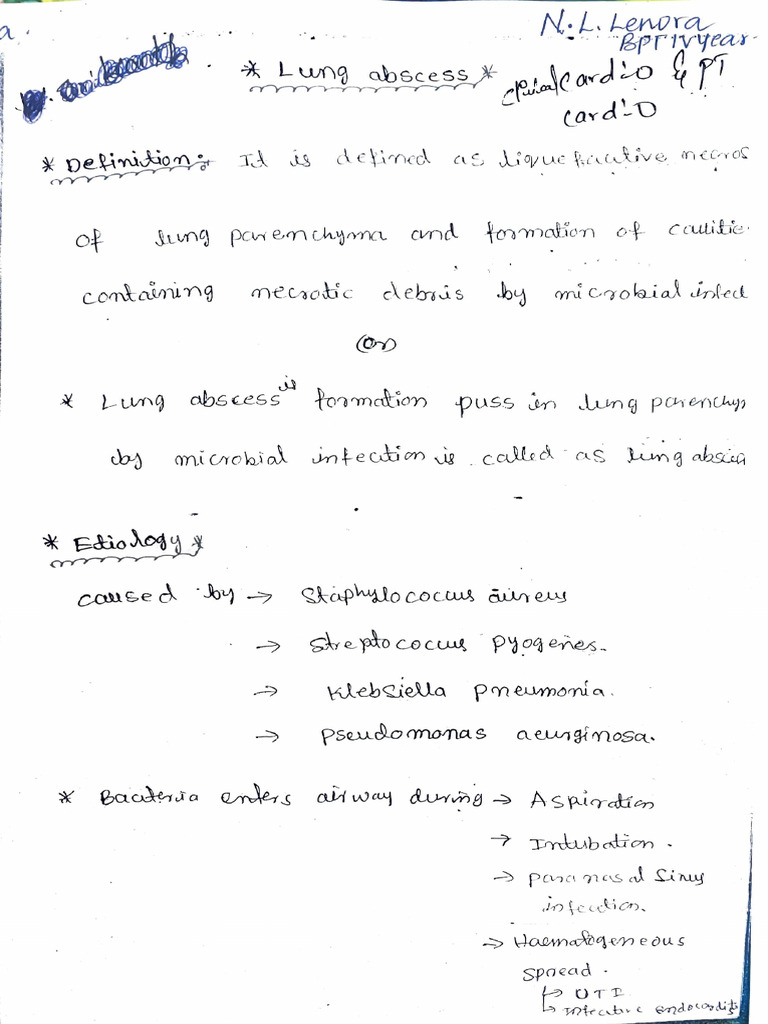 a.
N. L. Lenora
BPT IV year
* Lung abscess *
clinical cardio & PT
cardio
* Definition:- It is defined as liquefactive necros
of lung parenchyma and formation of cavitie
containing necrotic debris by microbial infect
(or)
* Lung abscess is formation puss in lung parenchy
by microbial infection is called as lung absce
* Etiology *
caused by → Staphylococcus aureus
→ Streptococcus pyogenes.
→ Klebsiella pneumonia.
→ Pseudomonas aeurginosa.
* Bacteria enters airway during → Aspiration
→ Intubation.
→ para nasal sinus
infection.
→ Haematogeneous
spread.
↳ UTI
↳ Infective endocardit